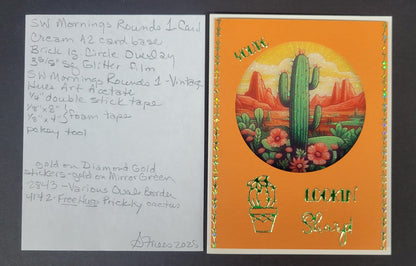 SW Mornings Rounds 1 Card
Cream A2 card base
Brick 12 Circle Overlay
3 5/8" Sq Glitter film
SW Mornings Rounds 1 - Vintage
Hues Art Acetate
1/4" double stick tape
1/8" x 8"
1/8" x 4" } foam tape
pokey tool
gold on Diamond Gold
stickers - gold on Mirror Green
2843 - Various Oval Border
4172 - Free Hugs Prickly cactus
2025
YOU'RE
LOOKIN'
Sharp!